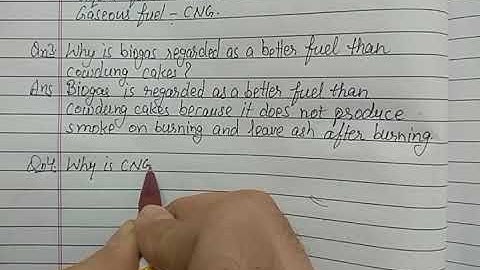 Gaseous fuel - CNG.
Qn3. Why is biogas regarded as a better fuel than
cowdung cakes?
Ans Biogas is regarded as a better fuel than
cowdung cakes because it does not produce
smoke on burning and leave ash after burning
Qn4. Why is CNG